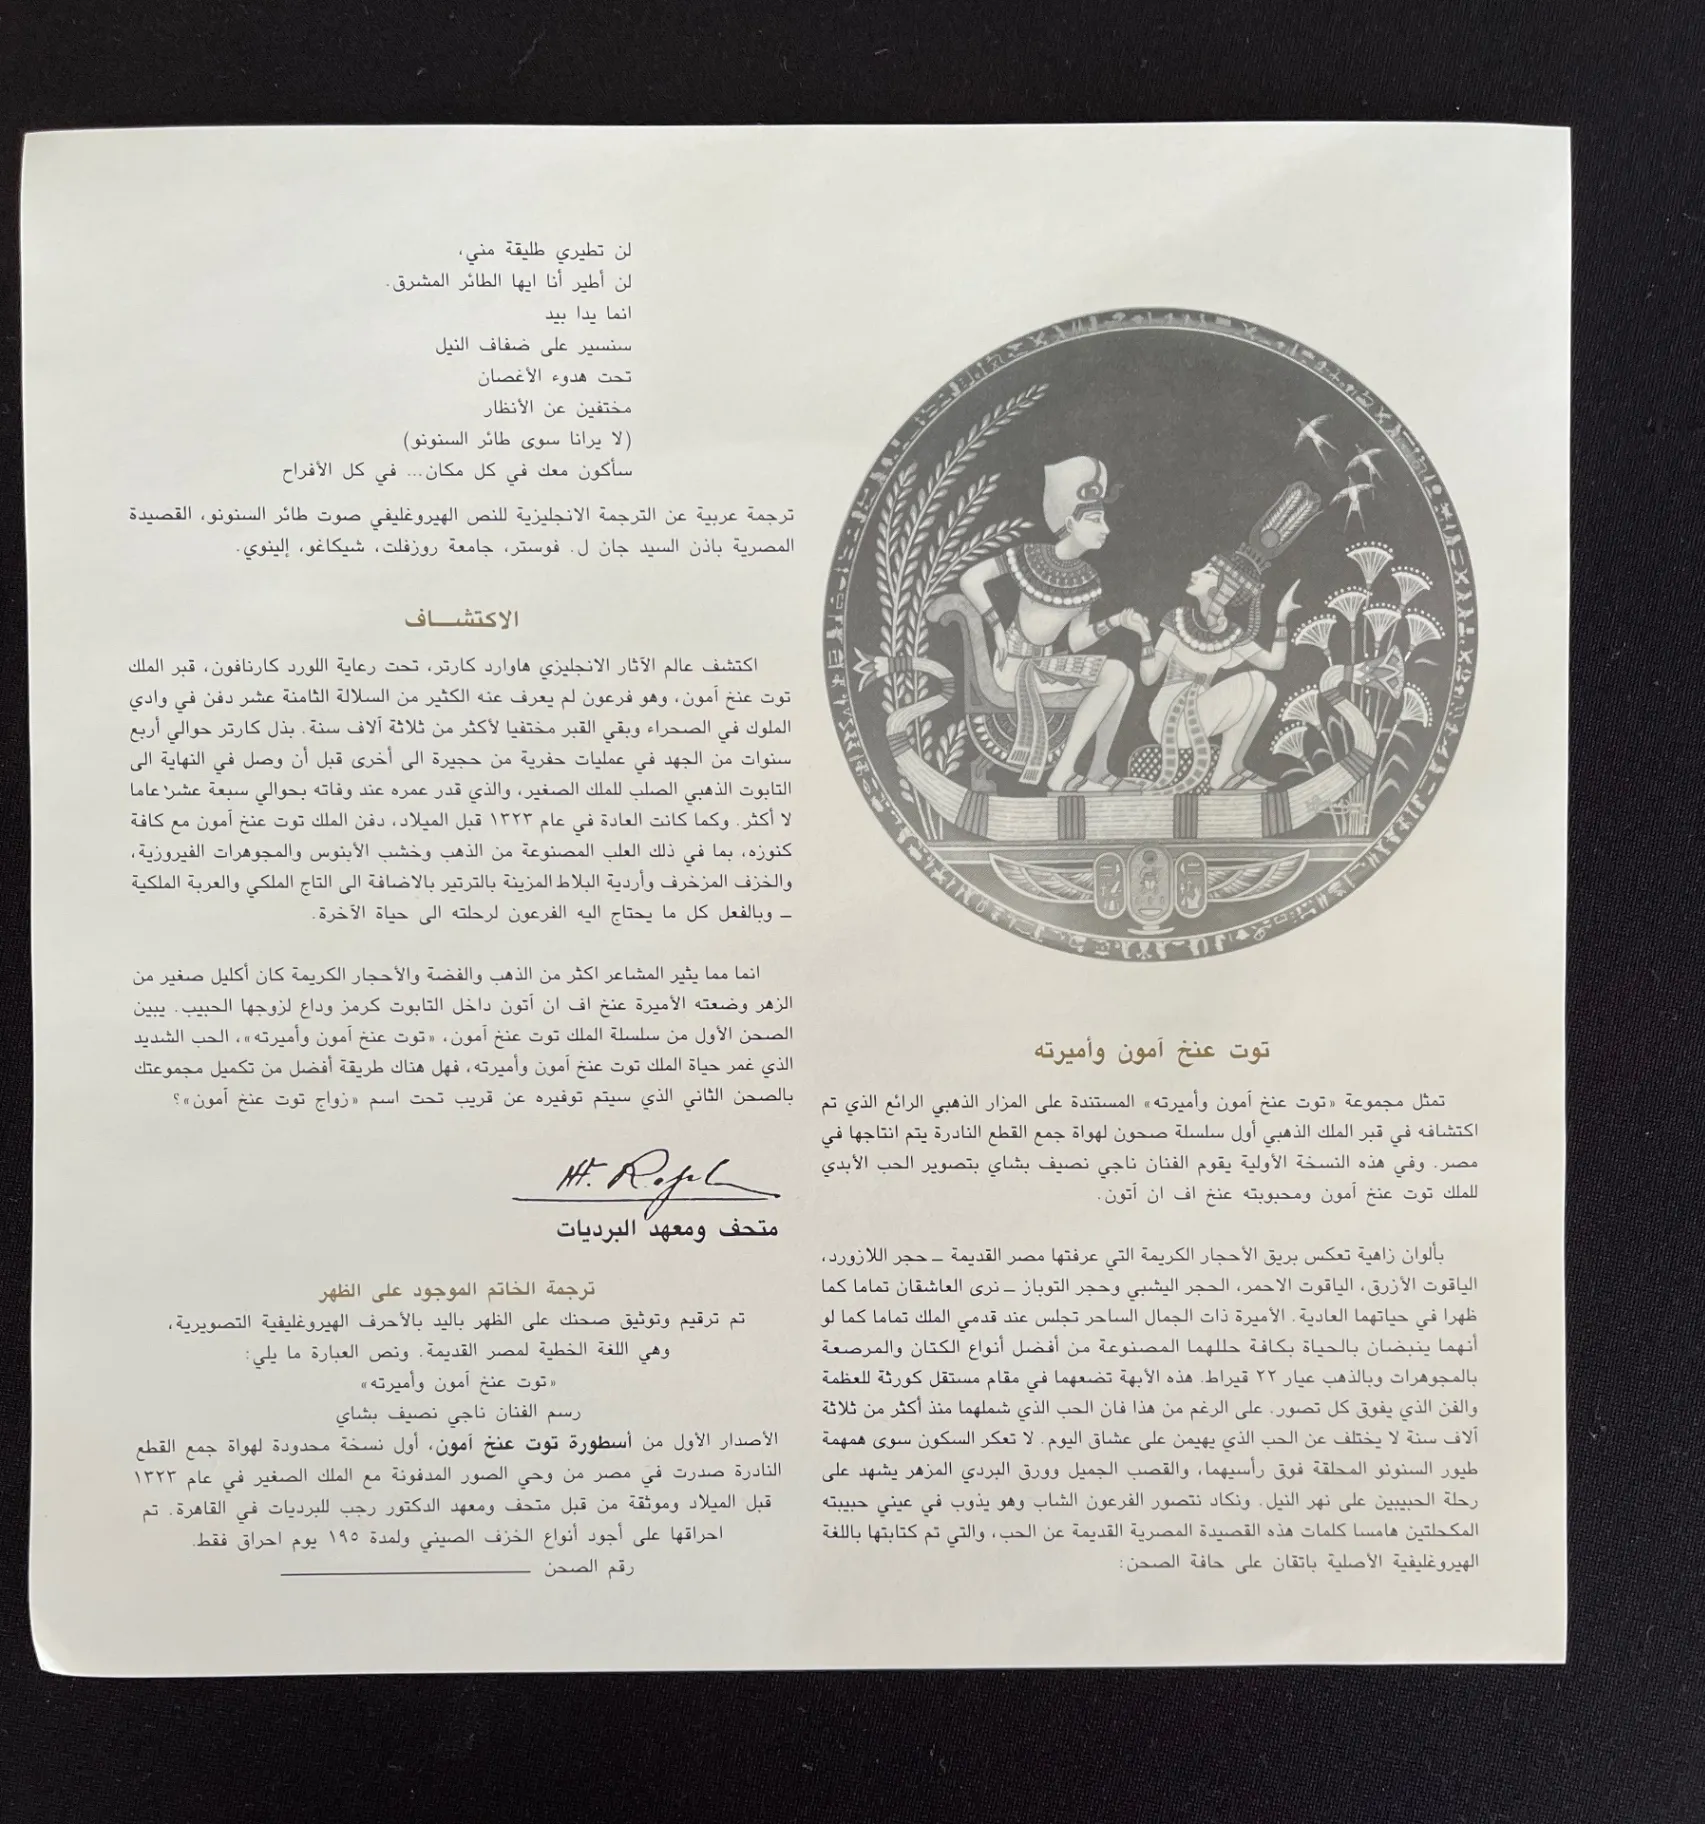 توت عنخ آمون وأميرته
تمثل مجموعة «توت عنخ آمون وأميرته» المستندة على المزار الذهبي الرائع الذي تم
اكتشافه في قبر الملك الذهبي أول سلسلة صحون لهواة جمع القطع النادرة يتم انتاجها في
مصر. وفي هذه النسخة الأولية يقوم الفنان ناجي نصيف بشاي بتصوير الحب الأبدي
للملك توت عنخ آمون ومحبوبته عنخ اف ان أتون.
بألوان زاهية تعكس بريق الأحجار الكريمة التي عرفتها مصر القديمة ــ حجر اللازورد،
الياقوت الأزرق، الياقوت الاحمر، الحجر اليشبي وحجر التوباز ــ نرى العاشقان تماما كما
ظهرا في حياتهما العادية. الأميرة ذات الجمال الساحر تجلس عند قدمي الملك تماما كما لو
أنهما ينبضان بالحياة بكافة حللهما المصنوعة من أفضل أنواع الكتان والمرصعة
بالمجوهرات وبالذهب عيار ٢٢ قيراط. هذه الأبهة تضعهما في مقام مستقل كورثة للعظمة
والفن الذي يفوق كل تصور. على الرغم من هذا فان الحب الذي شملهما منذ أكثر من ثلاثة
آلاف سنة لا يختلف عن الحب الذي يهيمن على عشاق اليوم. لا تعكر السكون سوى همهمة
طيور السنونو المحلقة فوق رأسيهما، والقصب الجميل وورق البردي المزهر يشهد على
رحلة الحبيبين على نهر النيل. ونكاد نتصور الفرعون الشاب وهو يذوب في عيني حبيبته
المكحلتين هامسا كلمات هذه القصيدة المصرية القديمة عن الحب، والتي تم كتابتها باللغة
الهيروغليفية الأصلية باتقان على حافة الصحن:
لن تطيري طليقة مني،
لن أطير أنا ايها الطائر المشرق.
انما يدا بيد
سنسير على ضفاف النيل
تحت هدوء الأغصان
مختفين عن الأنظار
(لا يرانا سوى طائر السنونو)
سأكون معك في كل مكان... في كل الأفراح
ترجمة عربية عن الترجمة الانجليزية للنص الهيروغليفي صوت طائر السنونو، القصيدة
المصرية باذن السيد جان ل. فوستر، جامعة روزفلت، شيكاغو، إلينوي.
الاكتشـــاف
اكتشف عالم الآثار الانجليزي هاوارد كارتر، تحت رعاية اللورد كارنافون، قبر الملك
توت عنخ آمون، وهو فرعون لم يعرف عنه الكثير من السلالة الثامنة عشر دفن في وادي
الملوك في الصحراء وبقي القبر مختفيا لأكثر من ثلاثة آلاف سنة. بذل كارتر حوالي أربع
سنوات من الجهد في عمليات حفرية من حجيرة الى أخرى قبل أن وصل في النهاية الى
التابوت الذهبي الصلب للملك الصغير، والذي قدر عمره عند وفاته بحوالي سبعة عشر عاما
لا أكثر. وكما كانت العادة في عام ١٣٢٣ قبل الميلاد، دفن الملك توت عنخ آمون مع كافة
كنوزه، بما في ذلك العلب المصنوعة من الذهب وخشب الأبنوس والمجوهرات الفيروزية،
والخزف المزخرف وأردية البلاط المزينة بالترتير بالاضافة الى التاج الملكي والعربة الملكية
ــ وبالفعل كل ما يحتاج اليه الفرعون لرحلته الى حياة الآخرة.
انما مما يثير المشاعر اكثر من الذهب والفضة والأحجار الكريمة كان أكليل صغير من
الزهر وضعته الأميرة عنخ اف ان أتون داخل التابوت كرمز وداع لزوجها الحبيب. يبين
الصحن الأول من سلسلة الملك توت عنخ آمون، «توت عنخ آمون وأميرته»، الحب الشديد
الذي غمر حياة الملك توت عنخ آمون وأميرته، فهل هناك طريقة أفضل من تكميل مجموعتك
بالصحن الثاني الذي سيتم توفيره عن قريب تحت اسم «زواج توت عنخ آمون»؟
متحف ومعهد البرديات
ترجمة الخاتم الموجود على الظهر
تم ترقيم وتوثيق صحنك على الظهر باليد بالأحرف الهيروغليفية التصويرية،
وهي اللغة الخطية لمصر القديمة. ونص العبارة ما يلي:
«توت عنخ آمون وأميرته»
رسم الفنان ناجي نصيف بشاي
الأصدار الأول من أسطورة توت عنخ آمون، أول نسخة محدودة لهواة جمع القطع
النادرة صدرت في مصر من وحي الصور المدفونة مع الملك الصغير في عام ١٣٢٣
قبل الميلاد وموثقة من قبل متحف ومعهد الدكتور رجب للبرديات في القاهرة. تم
احراقها على أجود أنواع الخزف الصيني ولمدة ١٩٥ يوم احراق فقط.
رقم الصحن